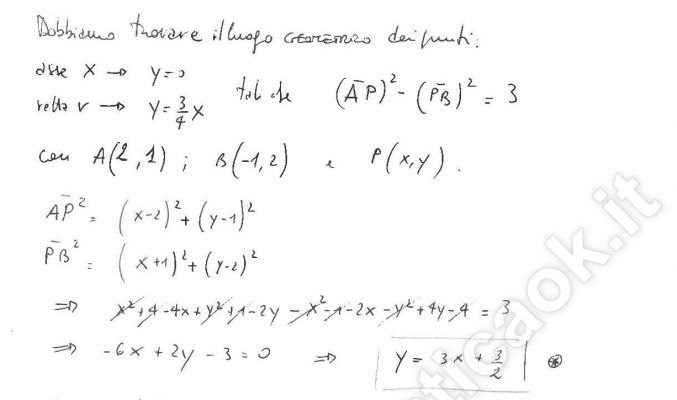 Dobbiamo trovare il luogo GEOMETRICO dei punti:
asse x → y=0
retta r → y=3/4x
tal che (A̅P̅)² - (P̅B̅)² = 3
con A(2,1); B(-1,2) e P(x,y).
A̅P̅² = (x-2)²+(y-1)²
P̅B̅² = (x+1)²+(y-2)²
⇒ x²+4-4x+y²+1-2y-x²-1-2x-y²+4y-4 = 3
⇒ -6x+2y-3=0 ⇒ y= 3x+3/2 ⊛
aticaok.it